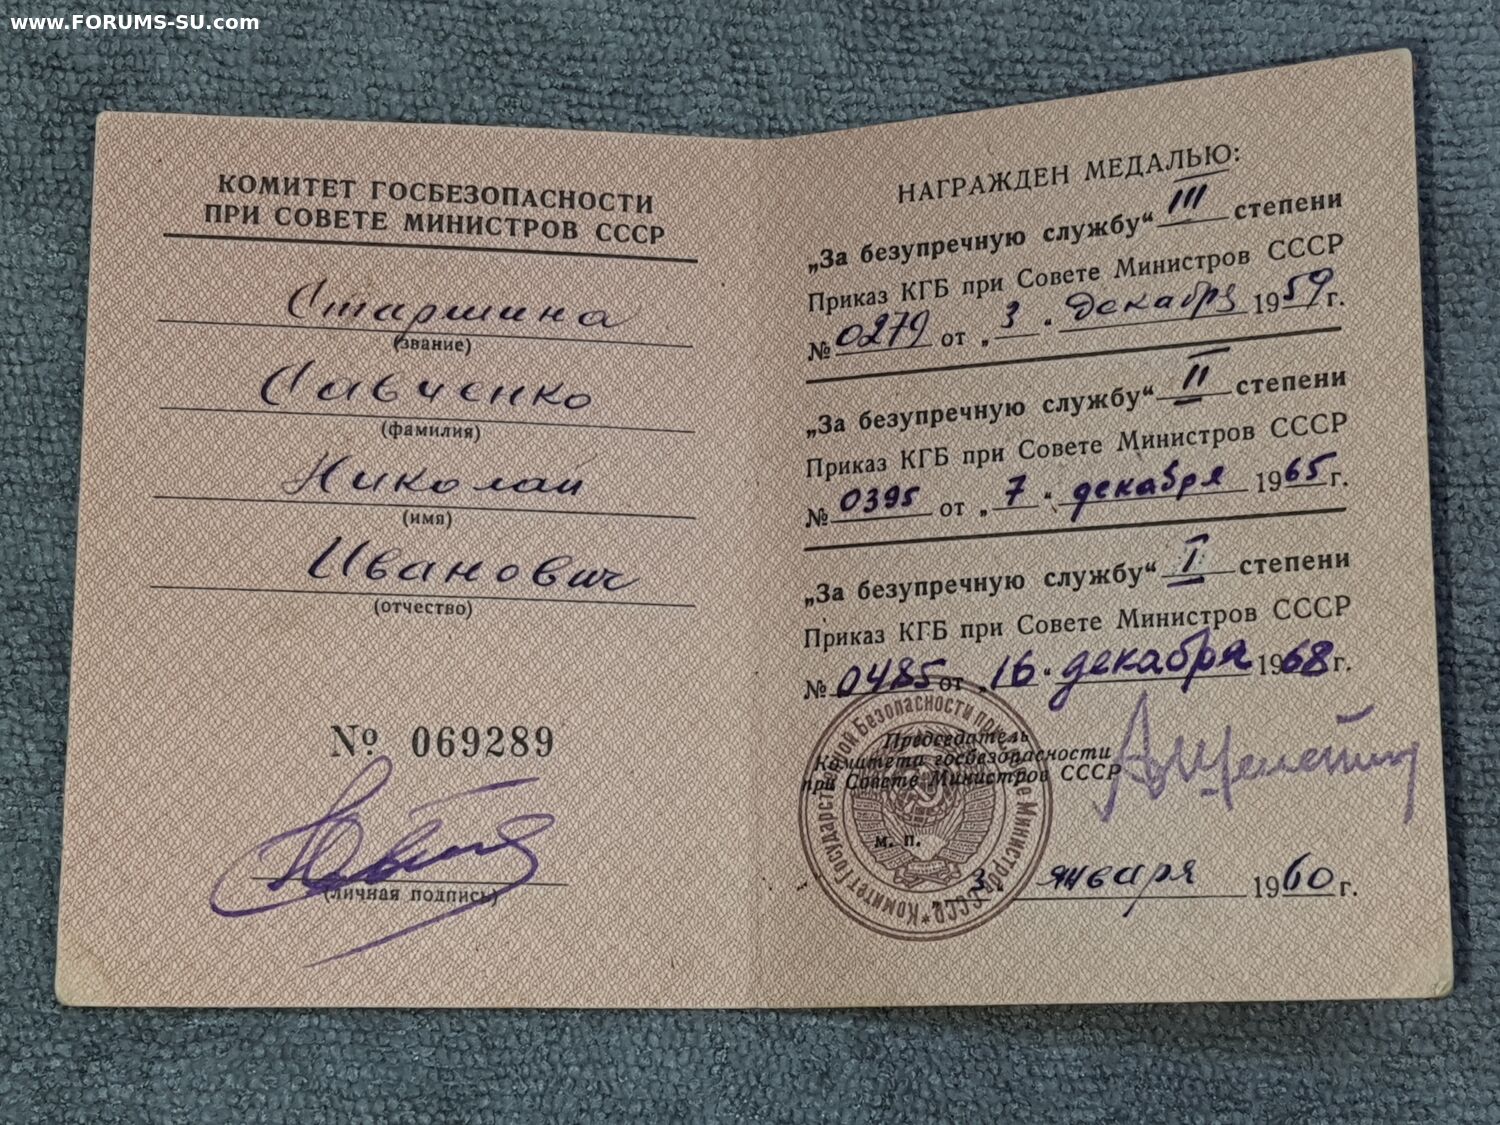 www.FORUMS-SU.com
КОМИТЕТ ГОСБЕЗОПАСНОСТИ
ПРИ СОВЕТЕ МИНИСТРОВ СССР
Старшина
(звание)
Савченко
(фамилия)
Николай
(имя)
Иванович
(отчество)
№ 069289
(личная подпись)
НАГРАЖДЕН МЕДАЛЬЮ:
„За безупречную службу“ III степени
Приказ КГБ при Совете Министров СССР
№ 0279 от „3“ декабря 1959 г.
„За безупречную службу“ II степени
Приказ КГБ при Совете Министров СССР
№ 0395 от „7“ декабря 1965 г.
„За безупречную службу“ I степени
Приказ КГБ при Совете Министров СССР
№ 0485 от „16“ декабря 1968 г.
Председатель
Комитета госбезопасности
при Совете Министров СССР
А. Шелепин
м. п.
„3“ января 1960 г.
* Комитет Государственной Безопасности при Совете Министров СССР